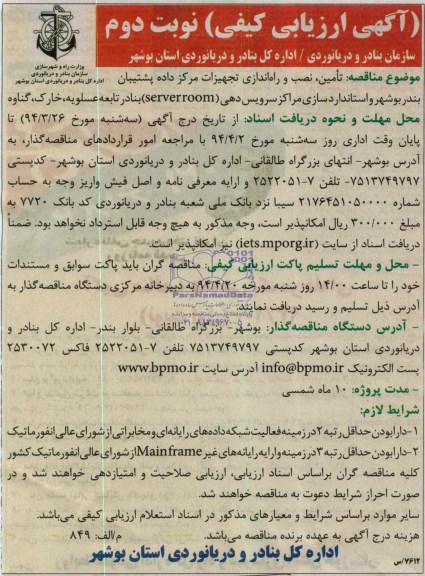 (آگهی ارزیابی کیفی) نوبت دوم
سازمان بنادر و دریانوردی / اداره کل بنادر و دریانوردی استان بوشهر
وزارت راه و شهرسازی
سازمان بنادر و دریانوردی
اداره کل بنادر و دریانوردی استان بوشهر
موضوع مناقصه: تأمین، نصب و راه‌اندازی تجهیزات مرکز داده پشتیبان
بندر بوشهر و استانداردسازی مراکز سرویس دهی (serverroom) بنادر تابعه عسلویه، خارک، گناوه
محل مهلت و نحوه دریافت اسناد: از تاریخ درج آگهی (سه‌شنبه مورخ ۹۴/۳/۲۶) تا
پایان وقت اداری روز سه‌شنبه مورخ ۹۴/۴/۲ با مراجعه امور قراردادهای مناقصه‌گذار، به
آدرس بوشهر- انتهای بزرگراه طالقانی- اداره کل بنادر و دریانوردی استان بوشهر- کدپستی
۷۵۱۳۷۴۹۷۹۷- تلفن ۷-۲۵۲۲۰۵۱ و ارایه معرفی نامه و اصل فیش واریز وجه به حساب
شماره ۲۱۷۶۴۵۱۰۵۰۰۰۰ سیبا نزد بانک ملی شعبه بنادر و دریانوردی کد بانک ۷۷۲۰ به
مبلغ ۳۰۰/۰۰۰ ریال امکانپذیر است، وجه مذکور به هیچ وجه قابل استرداد نخواهد بود. ضمناً
دریافت اسناد از سایت (iets.mporg.ir) نیز امکانپذیر است.
- محل و مهلت تسلیم پاکت ارزیابی کیفی: مناقصه گران باید پاکت سوابق و مستندات
خود را تا ساعت ۱۴/۰۰ روز شنبه مورخه ۹۴/۴/۲۰ به دبیرخانه مرکزی دستگاه مناقصه‌گذار به
آدرس ذیل تسلیم و رسید دریافت نمایند.
ParsNamadData
- آدرس دستگاه مناقصه‌گذار: بوشهر- بزرگراه طالقانی- بلوار بندر- اداره کل بنادر و
دریانوردی استان بوشهر کدپستی ۷۵۱۳۷۴۹۷۹۷ تلفن ۷-۲۵۲۲۰۵۱ فاکس ۲۵۳۰۰۷۲
پست الکترونیک info@bpmo.ir آدرس سایت www.bpmo.ir
- مدت پروژه: ۱۰ ماه شمسی
شرایط لازم:
۱-دارا بودن حداقل رتبه ۲ در زمینه فعالیت شبکه داده‌های رایانه‌ای و مخابراتی از شورای عالی انفورماتیک
۲-دارا بودن حداقل رتبه ۳ در زمینه و ارایه رایانه‌های غیر Mainframe از شورای عالی انفورماتیک کشور
کلیه مناقصه گران براساس اسناد ارزیابی، ارزیابی صلاحیت و امتیازدهی خواهند شد و در
صورت احراز شرایط دعوت به مناقصه خواهند شد.
سایر موارد براساس شرایط و معیارهای مذکور در اسناد استعلام ارزیابی کیفی می‌باشد.
هزینه درج آگهی به عهده برنده مناقصه می‌باشد. م/الف: ۸۴۹
اداره کل بنادر و دریانوردی استان بوشهر
۷۶۱۲/س